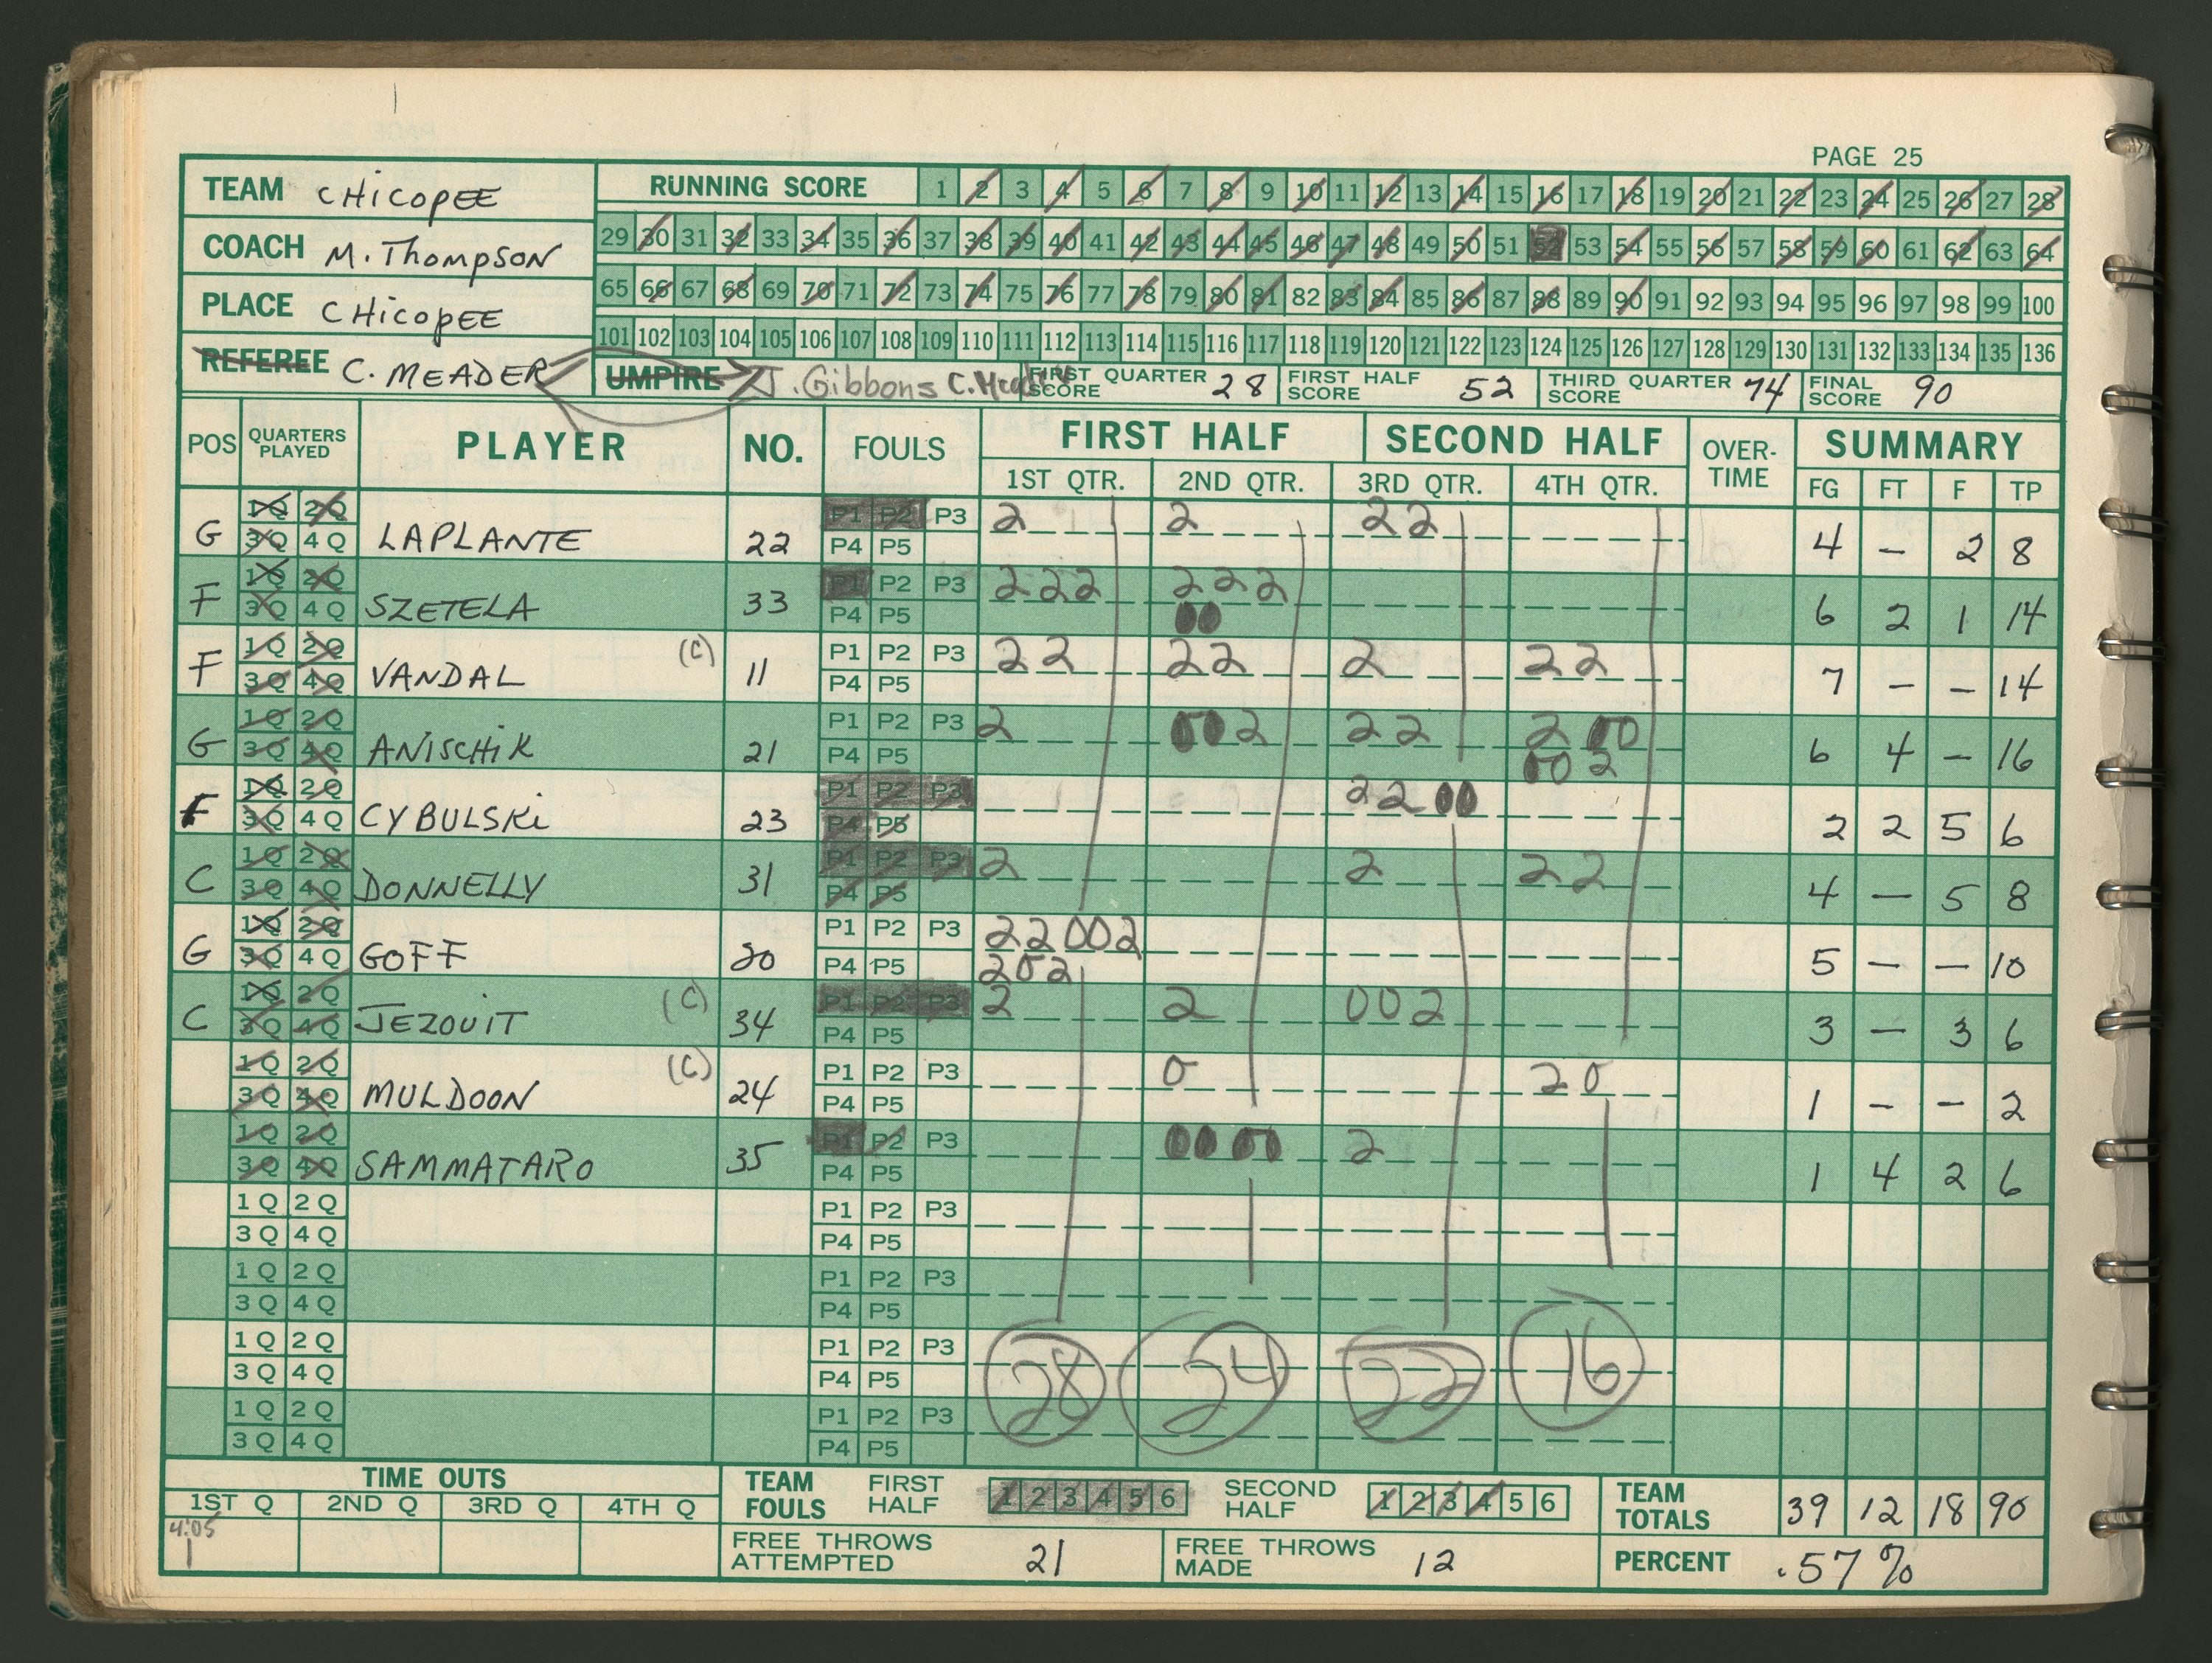 PAGE 25
TEAM CHICOPEE
RUNNING SCORE 1 2 3 4 5 6 7 8 9 10 11 12 13 14 15 16 17 18 19 20 21 22 23 24 25 26 27 28
COACH M. Thompson
29 30 31 32 33 34 35 36 37 38 39 40 41 42 43 44 45 46 47 48 49 50 51 52 53 54 55 56 57 58 59 60 61 62 63 64
PLACE CHicopEE
65 66 67 68 69 70 71 72 73 74 75 76 77 78 79 80 81 82 83 84 85 86 87 88 89 90 91 92 93 94 95 96 97 98 99 100
101 102 103 104 105 106 107 108 109 110 111 112 113 114 115 116 117 118 119 120 121 122 123 124 125 126 127 128 129 130 131 132 133 134 135 136
REFEREE C. MEADER
UMPIRE J. Gibbons C. Meader
FIRST QUARTER SCORE 28
FIRST HALF SCORE 52
THIRD QUARTER SCORE 74
FINAL SCORE 90
POS QUARTERS PLAYED PLAYER NO. FOULS FIRST HALF SECOND HALF OVER-TIME SUMMARY
1ST QTR. 2ND QTR. 3RD QTR. 4TH QTR. FG FT F TP
G 1Q 2Q LAPLANTE 22 P1 P2 P3 2 2 22 4 – 2 8
3Q 4Q P4 P5
F 1Q 2Q SZETELA 33 P1 P2 P3 222 222 6 2 1 14
3Q 4Q P4 P5 00
F 1Q 2Q VANDAL (C) 11 P1 P2 P3 22 22 2 22 7 – – 14
3Q 4Q P4 P5
G 1Q 2Q ANISCHIK 21 P1 P2 P3 2 002 22 2 00 6 4 – 16
3Q 4Q P4 P5 00 2
F 1Q 2Q CYBULSKi 23 P1 P2 P3 22 00 2 2 5 6
3Q 4Q P4 P5
C 1Q 2Q DONNELLY 31 P1 P2 P3 2 2 22 4 – 5 8
3Q 4Q P4 P5
G 1Q 2Q GOFF 20 P1 P2 P3 22002 5 – – 10
3Q 4Q P4 P5 202
C 1Q 2Q JEZOUIT (C) 34 P1 P2 P3 2 2 002 3 – 3 6
3Q 4Q P4 P5
1Q 2Q MULDOON (C) 24 P1 P2 P3 0 20 1 – – 2
3Q 4Q P4 P5
1Q 2Q SAMMATARO 35 P1 P2 P3 00 00 2 1 4 2 6
3Q 4Q P4 P5
1Q 2Q P1 P2 P3
3Q 4Q P4 P5
1Q 2Q P1 P2 P3
3Q 4Q P4 P5
1Q 2Q P1 P2 P3
3Q 4Q P4 P5
28 24 22 16
1Q 2Q P1 P2 P3
3Q 4Q P4 P5
TIME OUTS
1ST Q 2ND Q 3RD Q 4TH Q
4:05
1
TEAM FOULS FIRST HALF 1 2 3 4 5 6 SECOND HALF 1 2 3 4 5 6
TEAM TOTALS 39 12 18 90
FREE THROWS ATTEMPTED 21
FREE THROWS MADE 12
PERCENT .57%